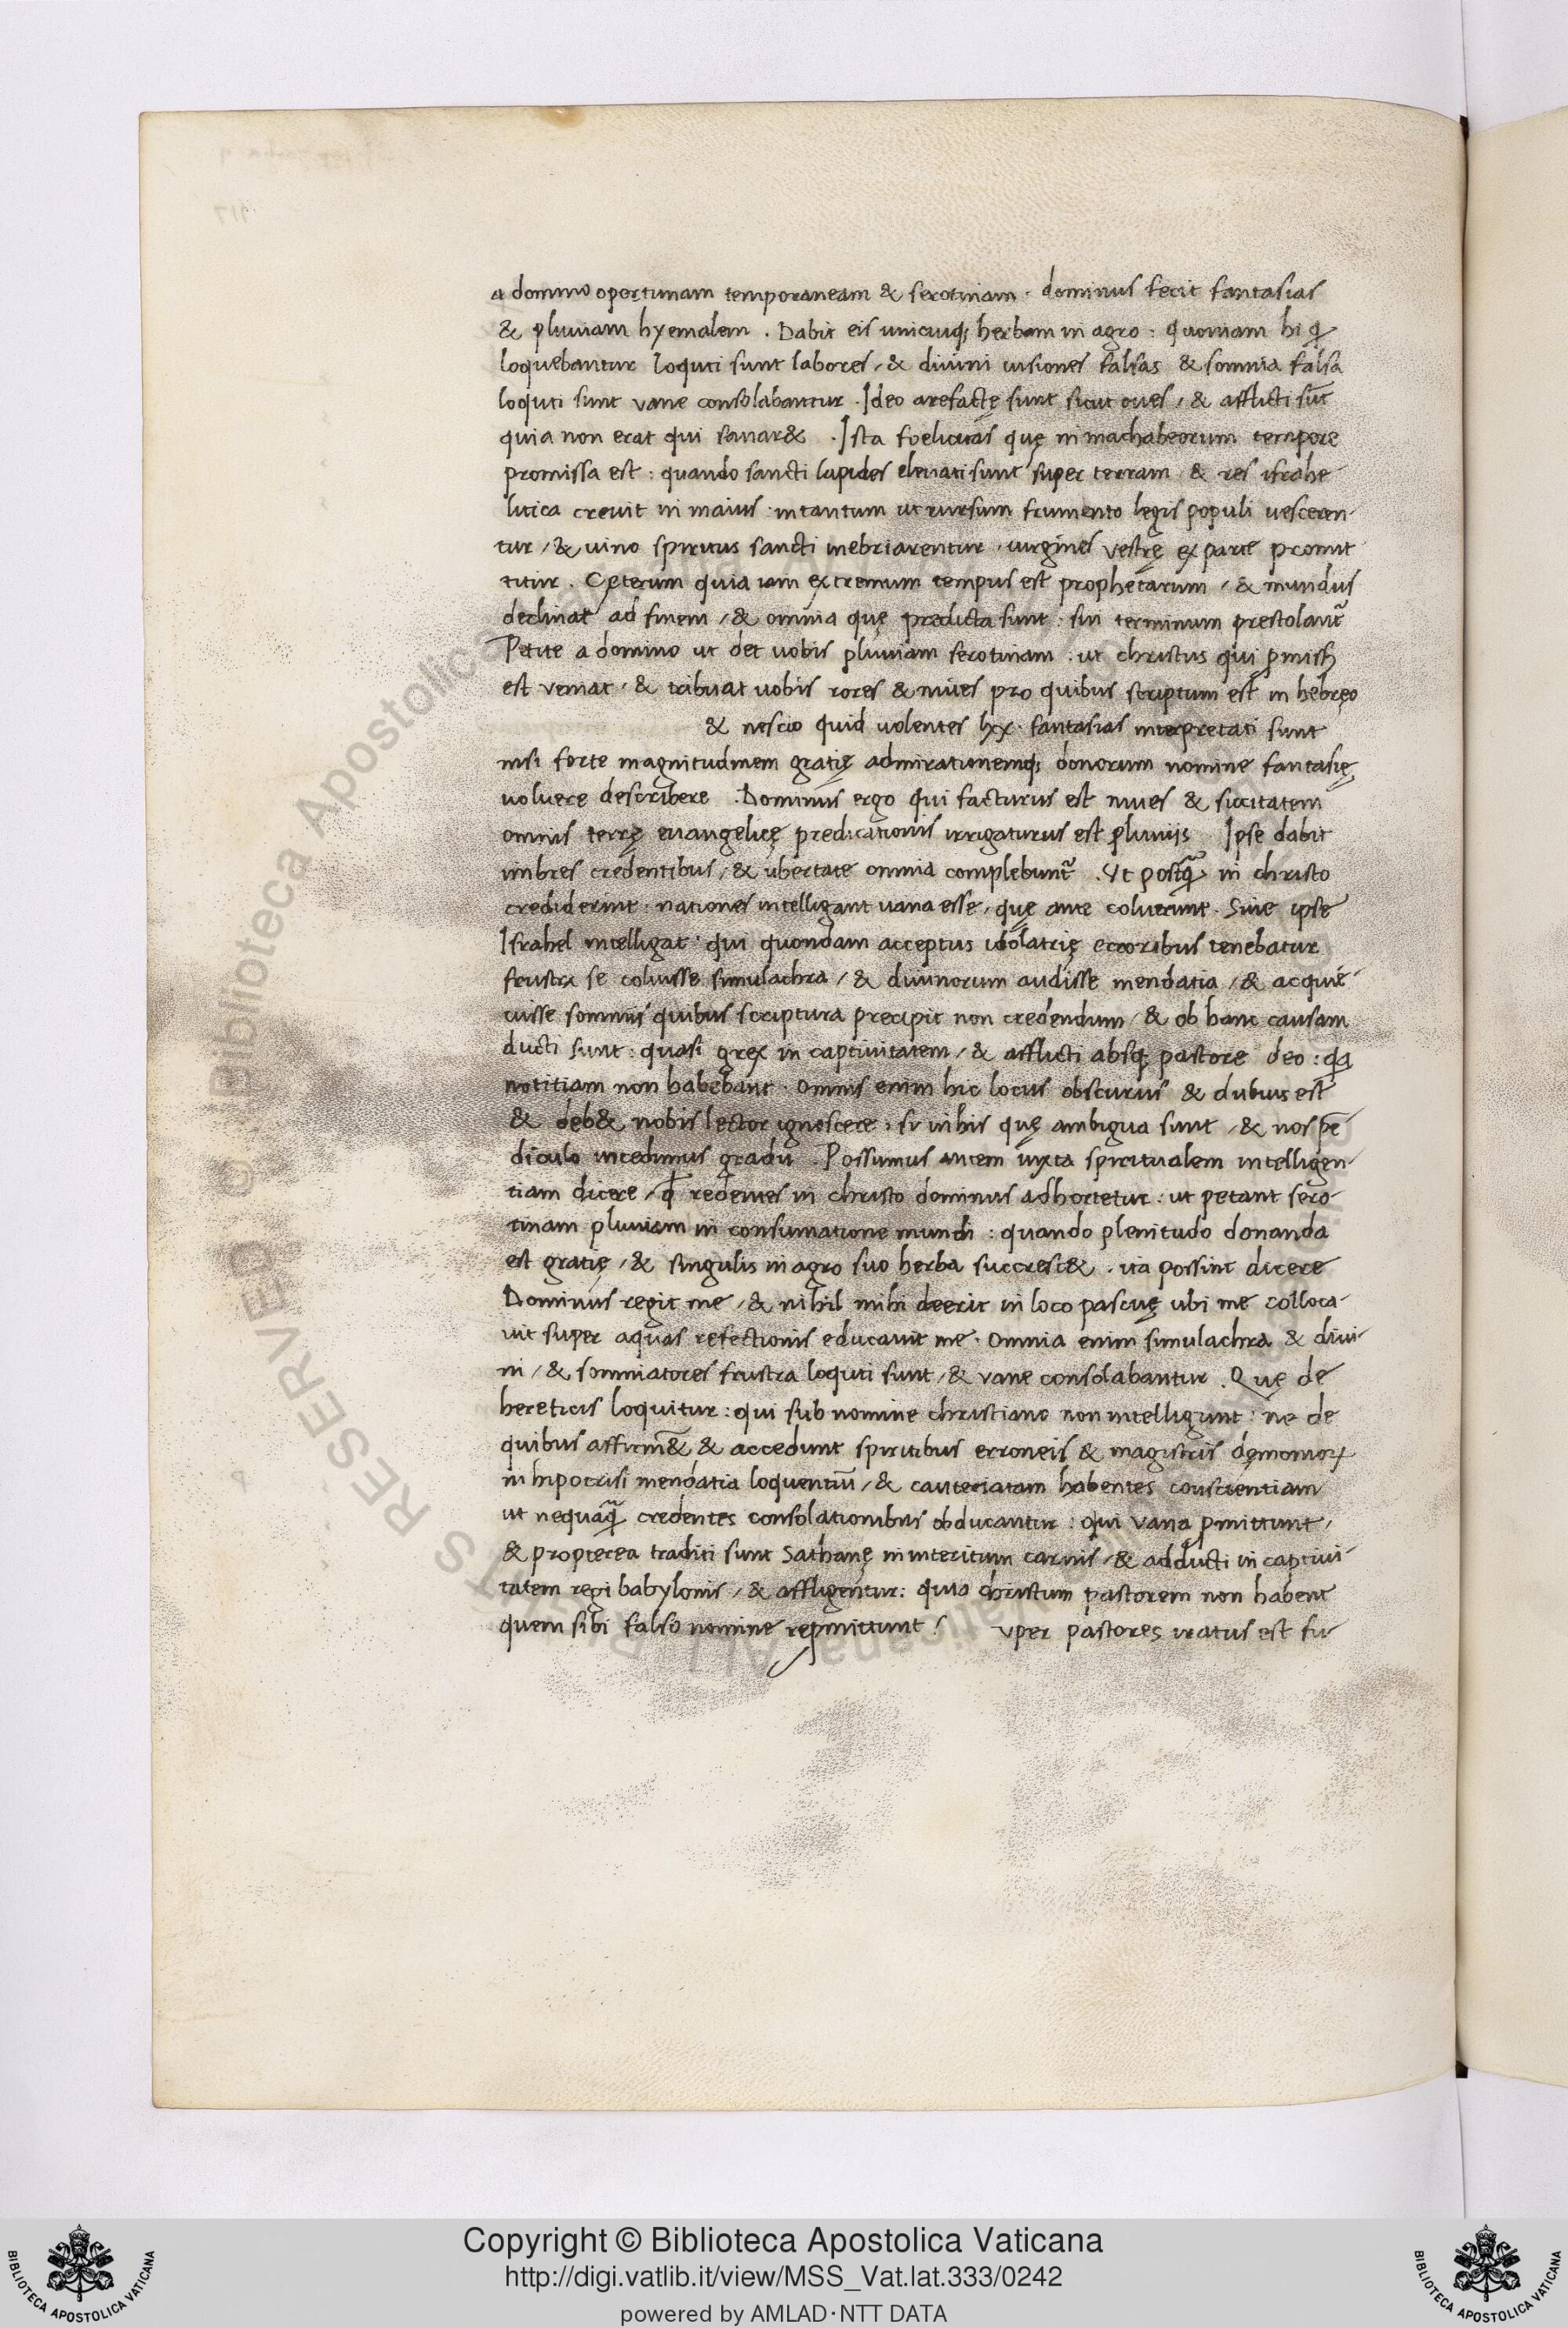 a domino oportunam temporaneam & serotinam · dominus fecit fantasias
& pluuiam hyemalem . Dabit eis unicuiq; herbam in agro : quoniam hi q̃
loquebantur loquti sunt labores / & diuini uisiones falsas & somnia falsa
loquti sunt vane consolabantur . Ideo arefactę sunt sicut oues / & afflicti sũt
quia non erat qui sanar& . Ista foelicitas quę in machabeorum tempore
promissa est : quando sancti lapides eleuati sunt super terram & res israhe-
litica creuit in maius · intantum ut rursum frumento legis populi uesceren-
tur / & uino spiritus sancti inebriarentur · uirgines vestrę ex parte promit
titur . Cęterum quia iam extremum tempus est prophetarum / & mundus
declinat ad finem / & omnia quę predicta sunt : sin terminum prestolant᷑
Petite a domino ut det uobis pluuiam serotinam : ut christus qui ꝓmissꝰ
est veniat · & tribuat uobis rores & niues pro quibus scriptum est in hebręo
& nescio quid uolentes lxx · fantasias interpretati sunt
nisi forte magnitudinem gratię admirationemq; donorum nomine fantasię
uoluere describere . Dominus ergo qui facturus est niues & siccitatem
omnis terrę euangelicę predicationis irrigaturus est pluuijs Ipse dabit
imbres credentibus / & ubertate omnia complebunt᷑ . Ut postq̃ in christo
crediderint · nationes intelligant uana esse / quę ante coluerunt · Siue ipse
Israhel intelligat · qui quondam acceptus idolatrię erroribus tenebatur
frustra se coluisse simulachra / & diuinorum audisse mendatia / & acquie-
uisse somniis quibus scriptura precipit non credendum / & ob hanc causam
ducti sunt : quasi grex in captiuitatem / & afflicti absq; pastore deo : q̃a
notitiam non habebant · omnis enim hic locus obscurus & dubius est
& deb& nobis lector ignoscere : si in his quę ambigua sunt / & nos pẽ
diculo incedimus gradu . Possumus autem iuxta spiritualem intelligen-
tiam dicere / qđ redemes in christo dominus adhortetur : ut petant sero-
tinam pluuiam in consumatione mundi : quando plenitudo donanda
est gratię / & singulis in agro suo herba succresc& . ita possint dicere
Dominus regit me / & nihil mihi deerit in loco pascuę ubi me colloca-
uit super aquas refectionis educauit me · omnia enim simulachra & diui-
ni / & somniatores frustra loquti sunt / & vane consolabantur . Quę de
hereticis loquitur : qui sub nomine christiano non intelligunt : ne de
quibus affirm& & accedunt spiritibus erroneis & magistris dęmonioꝝ
in hipocrisi mendatia loquentiũ / & cauteriatam habentes conscientiam
ut nequaq̃ credentes consolationibus obducantur : qui vana ꝓmittunt /
& propterea traditi sunt Sathanę in interitum carnis / & adducti in captiui-
tatem regi babylonis / & affligentur : quia christum pastorem non habent
quem sibi falso nomine reꝓmittunt : uper pastores iratus est fu-
Copyright © Biblioteca Apostolica Vaticana
http://digi.vatlib.it/view/MSS_Vat.lat.333/0242
powered by AMLAD·NTT DATA
BIBLIOTECA APOSTOLICA VATICANA
BIBLIOTECA APOSTOLICA VATICANA